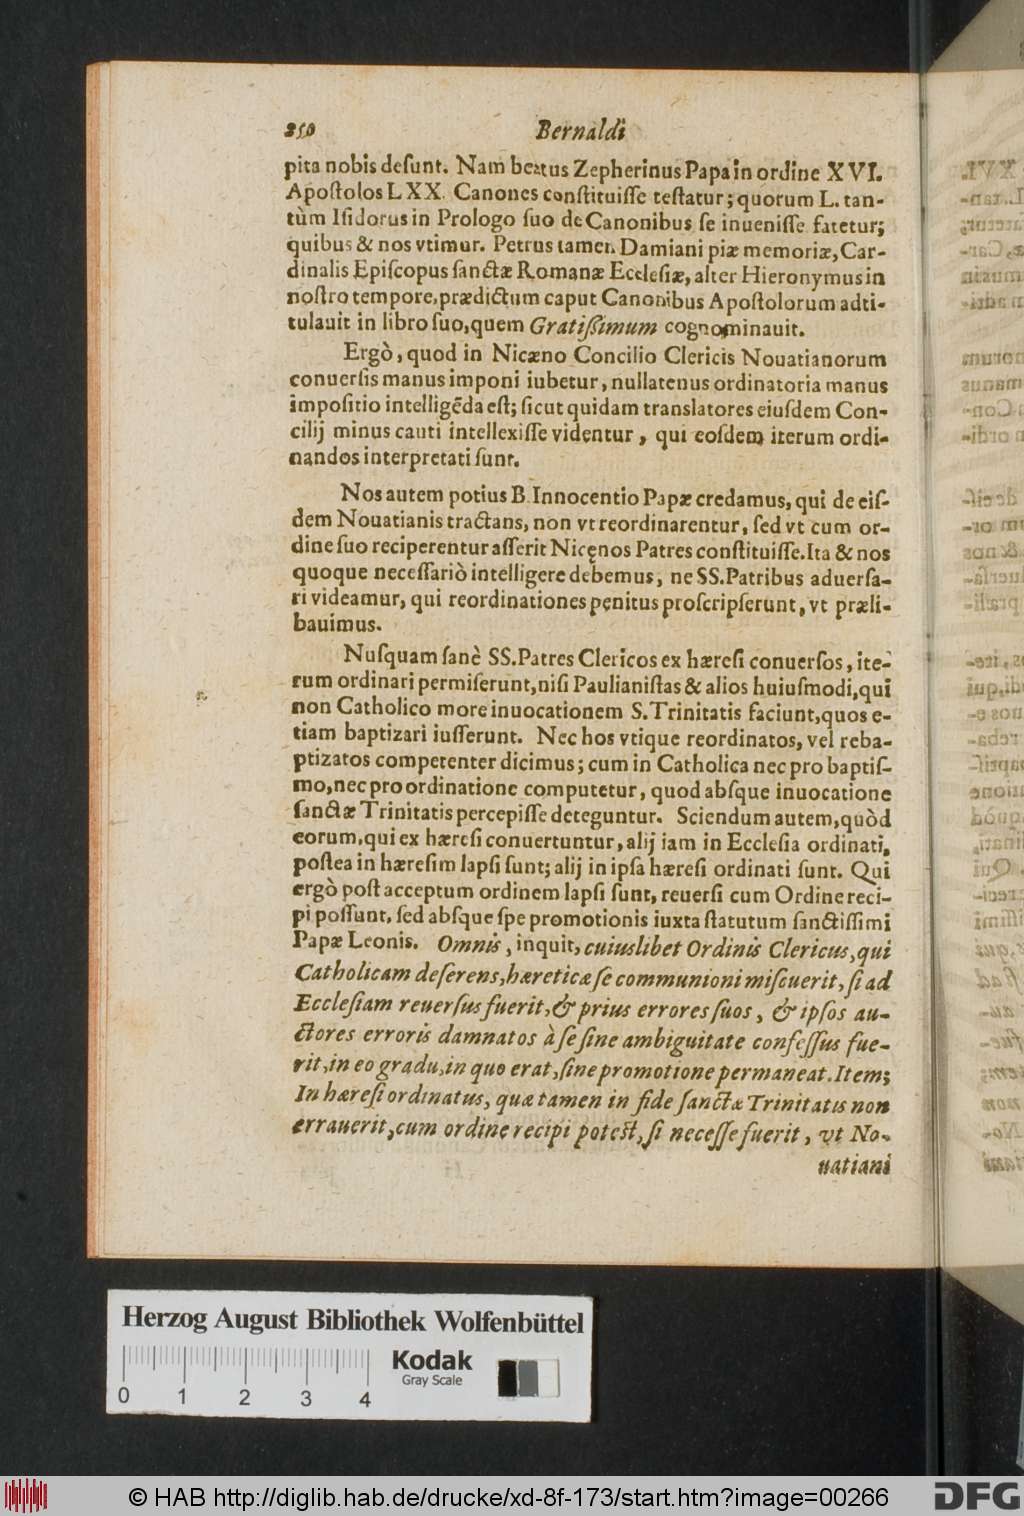 250 Bernaldi
pita nobis desunt. Nam beatus Zepherinus Papa in ordine XVI.
Apostolos LXX. Canones constituisse testatur; quorum L. tan-
tùm Isidorus in Prologo suo de Canonibus se inuenisse fatetur;
quibus & nos vtimur. Petrus tamen Damiani piæ memoriæ, Car-
dinalis Episcopus sanctæ Romanæ Ecclesiæ, alter Hieronymus in
nostro tempore, prædictum caput Canonibus Apostolorum adti-
tulauit in libro suo, quem Gratissimum cognominauit.
Ergò, quod in Nicæno Concilio Clericis Nouatianorum
conuersis manus imponi iubetur, nullatenus ordinatoria manus
impositio intelligēda est; sicut quidam translatores eiusdem Con-
cilij minus cauti intellexisse videntur, qui eosdem iterum ordi-
nandos interpretati sunt.
Nos autem potius B. Innocentio Papæ credamus, qui de eis-
dem Nouatianis tractans, non vt reordinarentur, sed vt cum or-
dine suo reciperentur asserit Nicęnos Patres constituisse. Ita & nos
quoque necessariò intelligere debemus, ne SS. Patribus aduersa-
ri videamur, qui reordinationes penitus proscripserunt, vt præli-
bauimus.
Nusquam sanè SS. Patres Clericos ex hæresi conuersos, ite-
rum ordinari permiserunt, nisi Paulianistas & alios huiusmodi, qui
non Catholico more inuocationem S. Trinitatis faciunt, quos e-
tiam baptizari iusserunt. Nec hos vtique reordinatos, vel reba-
ptizatos competenter dicimus; cum in Catholica nec pro baptis-
mo, nec pro ordinatione computetur, quod absque inuocatione
sanctæ Trinitatis percepisse deteguntur. Sciendum autem, quòd
eorum, qui ex hæresi conuertuntur, alij iam in Ecclesia ordinati,
postea in hæresim lapsi sunt; alij in ipsa hæresi ordinati sunt. Qui
ergò post acceptum ordinem lapsi sunt, reuersi cum Ordine reci-
pi possunt, sed absque spe promotionis iuxta statutum sanctissimi
Papæ Leonis. Omnis, inquit, cuiuslibet Ordinis Clericus, qui
Catholicam deserens, hæreticæ se communioni miscuerit, si ad
Ecclesiam reuersus fuerit, & prius errores suos, & ipsos au-
ctores erroris damnatos à se sine ambiguitate confessus fue-
rit, in eo gradu, in quo erat, sine promotione permaneat. Item;
In hæresi ordinatus, quæ tamen in fide sanctæ Trinitatis non
errauerit, cum ordine recipi potest, si necesse fuerit, vt No-
uatiani
Herzog August Bibliothek Wolfenbüttel
Kodak
Gray Scale
0 1 2 3 4
© HAB http://diglib.hab.de/drucke/xd-8f-173/start.htm?image=00266
DFG